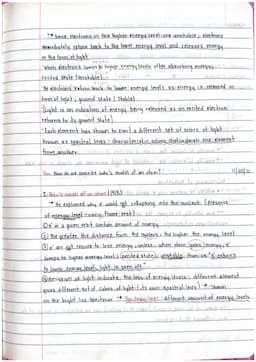 * Since electrons in the higher energy level are unstable, electrons
immediately return back to the lower energy level and releases energy
in the form of light
*When electrons jumps to higher energy levels after absorbing energy:
excited state (unstable)
*The electrons return back to lower energy levels as energy is released in
form of light; ground state (stable)
*Light is an indication of energy being released as an excited electron
returns to its ground state)
*Each element has shown to emit a different set of colors of light
known as spectral lines - characteristic colors, distinguish one element
from another.
How do we describe Bohr's model of an atom?
I. Bohr's model of an atom (1913)
* explained why e⁻ would not collapsing into the nucleus (presence
of energy level -
① e⁻ in a given orbit contain amount of energy
② The greater the distance from the nucleus : the higher the energy level
③ e⁻ do not require to lose energy; unless : when atom gains energy, e⁻
jumps to higher energy level (excited state): unstable, than is
to lower energy level, light is given off
④ emission of light indicate the loss of energy levels; different element
gives different set of colors of light (its own spectral lines) * shown
on the bright line spectrum * different amount of energy levels